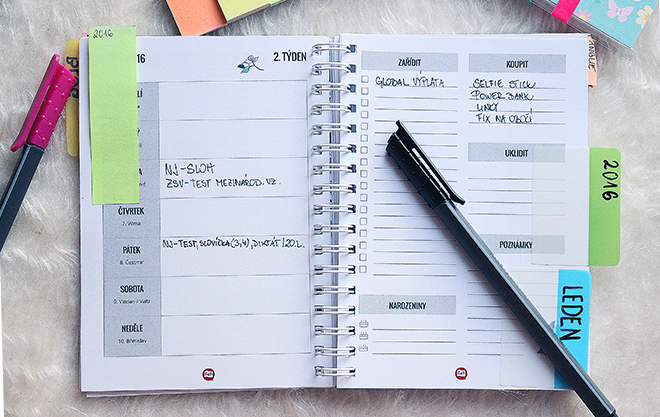 2016
16
2. TÝDEN
NJ-SLOH
ZSV-TEST MEZINÁROD. VZ.
ČTVRTEK
7. Vilma
NJ-TEST, SLOVÍČKA (3,4), DIKTÁT/20.L.
PÁTEK
8. Čestmír
SOBOTA
9. Vladan / Valtr
NEDĚLE
10. Břetislav
ZAŘÍDIT
GLOBAL VÝPLATA
NAROZENINY
KOUPIT
SELFIE STICK
POWER BANK
LINKY
FIX NA OBOČÍ
UKLIDIT
POZNÁMKY
2016
LEDEN